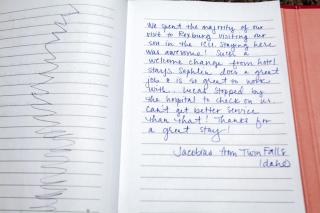 We spent the majority of our
visit to Rexburg visiting our
son in the ICU. Staying here
was awesome! Such a
welcome change from hotel
stays. Sephlen does a great
job & is so great to work
with. Lucas stopped by
the hospital to check on us.
Can't get better service
than that! Thanks for
a great stay!
Jacobias Twin Falls,
Idaho